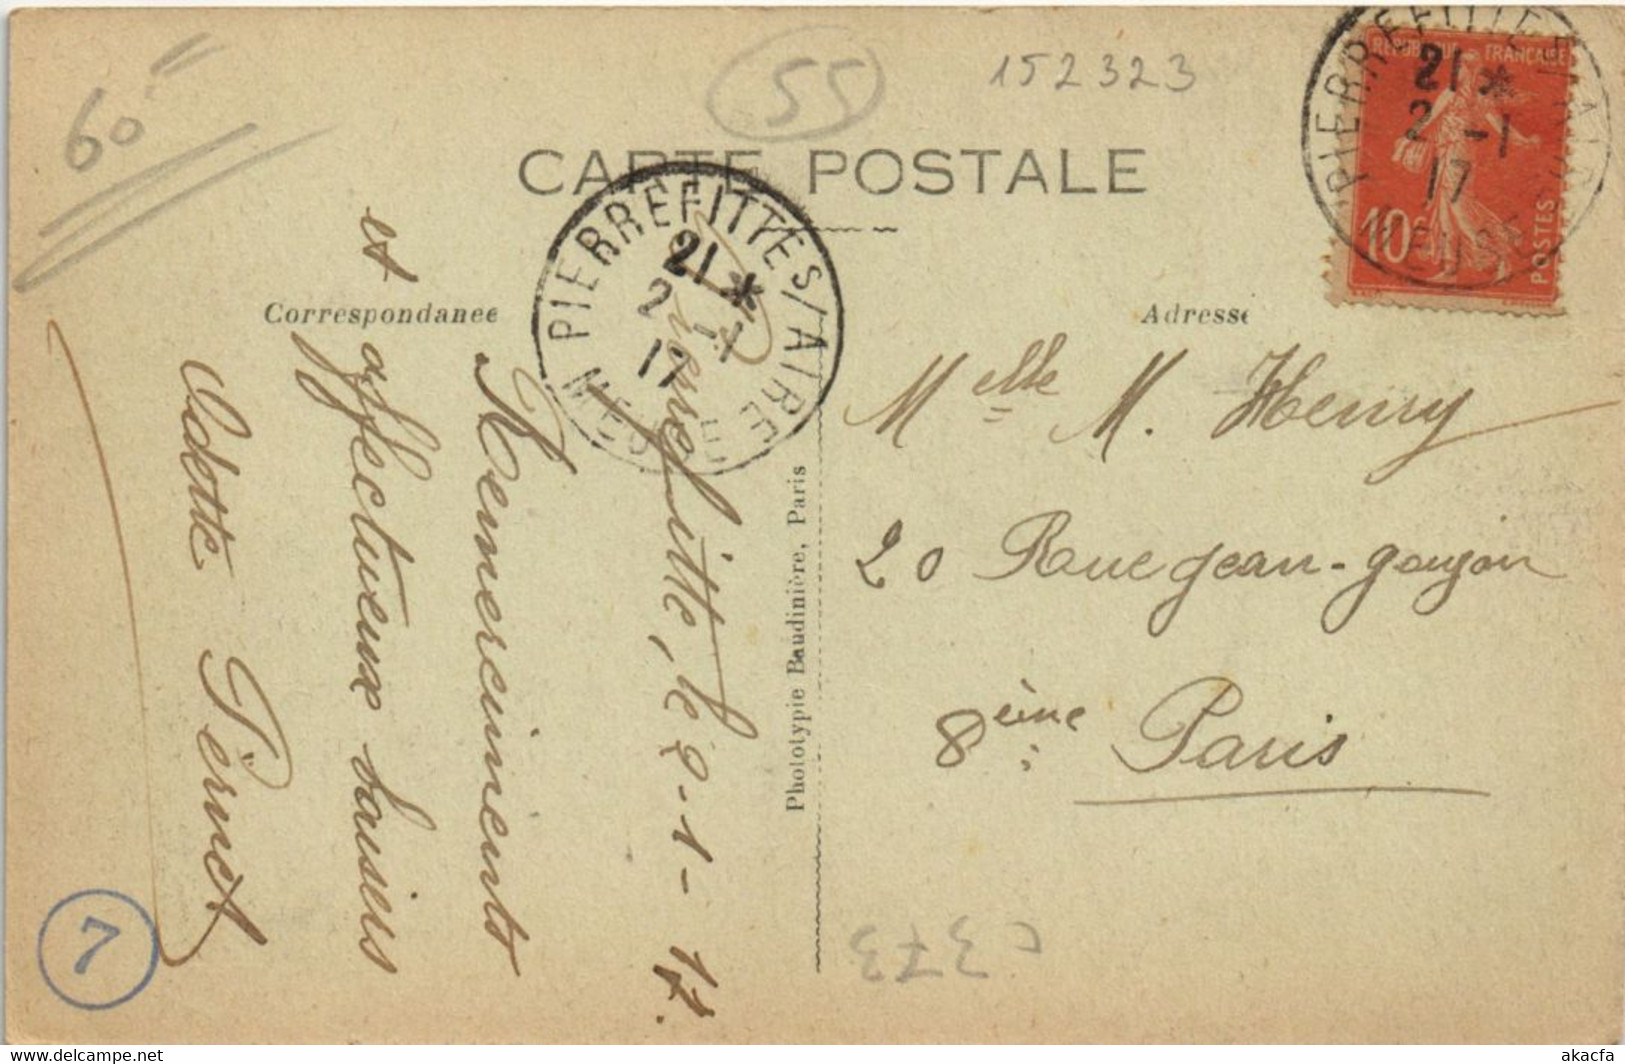 60
55
152323
CARTE POSTALE
REPUBLIQUE FRANÇAISE
10c
POSTES
PIERREFITTE S/AIRE
21 *
2 -1
17
MEUSE
PIERREFITTE S/AIRE
21 *
2 -1
17
MEUSE
Correspondance
Adresse
Pierrefitte, le 2-1-17.
Remerciments
et affectueux baisers
Odette Pernet
Phototypie Baudinière, Paris
Melle M. Henry
20 Rue Jean-Goujon
8ème Paris
c373
7
akpool.co.uk
akacfa